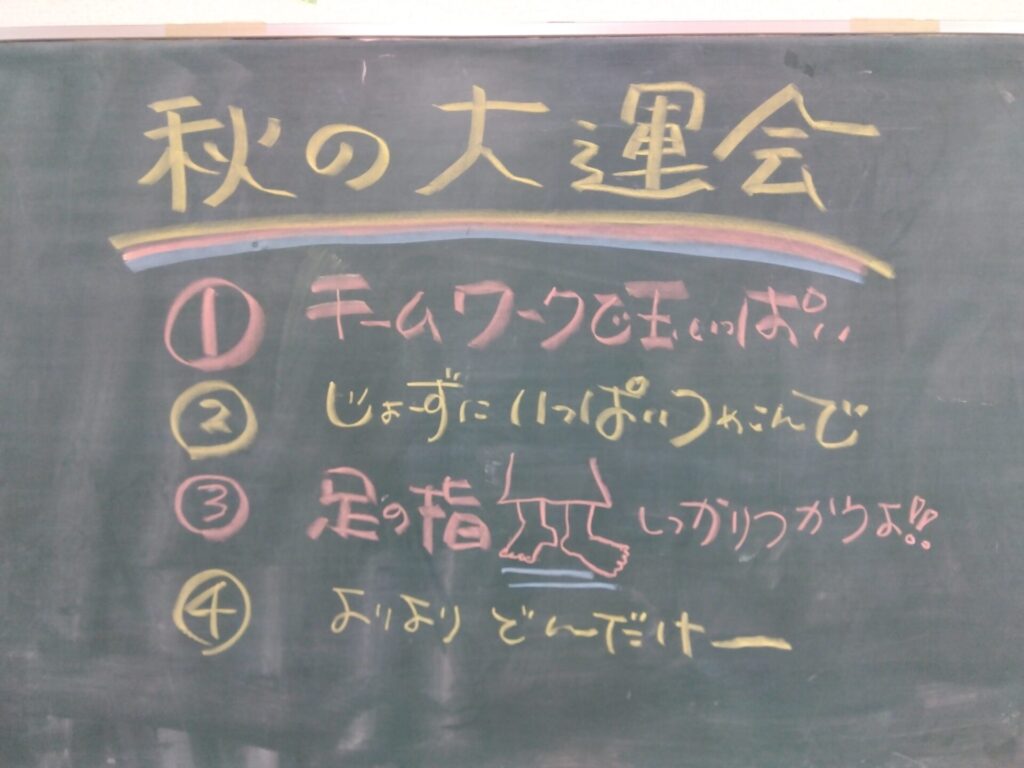 秋の大運会
① チームワークで玉いっぱい
② じょーずにいっぱいつめこんで
③ 足の指 しっかりつかうよ!!
④ よりより どんーだけー